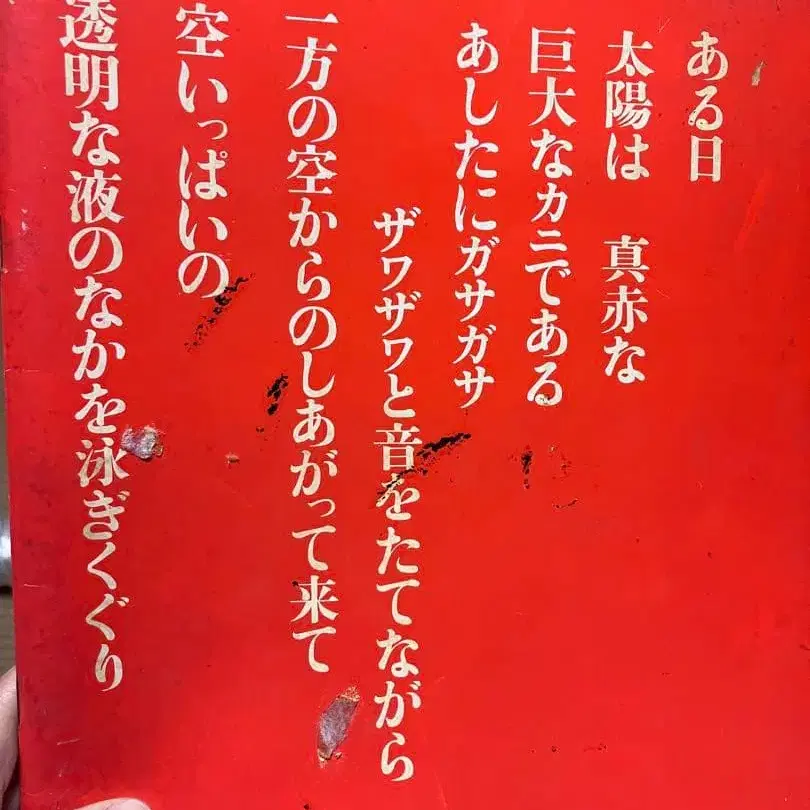 ある日
太陽は　真赤な
巨大なカニである
あしたにガサガサ
ザワザワと音をたてながら
一方の空からのしあがって来て
空いっぱいの
透明な液のなかを泳ぎくぐり